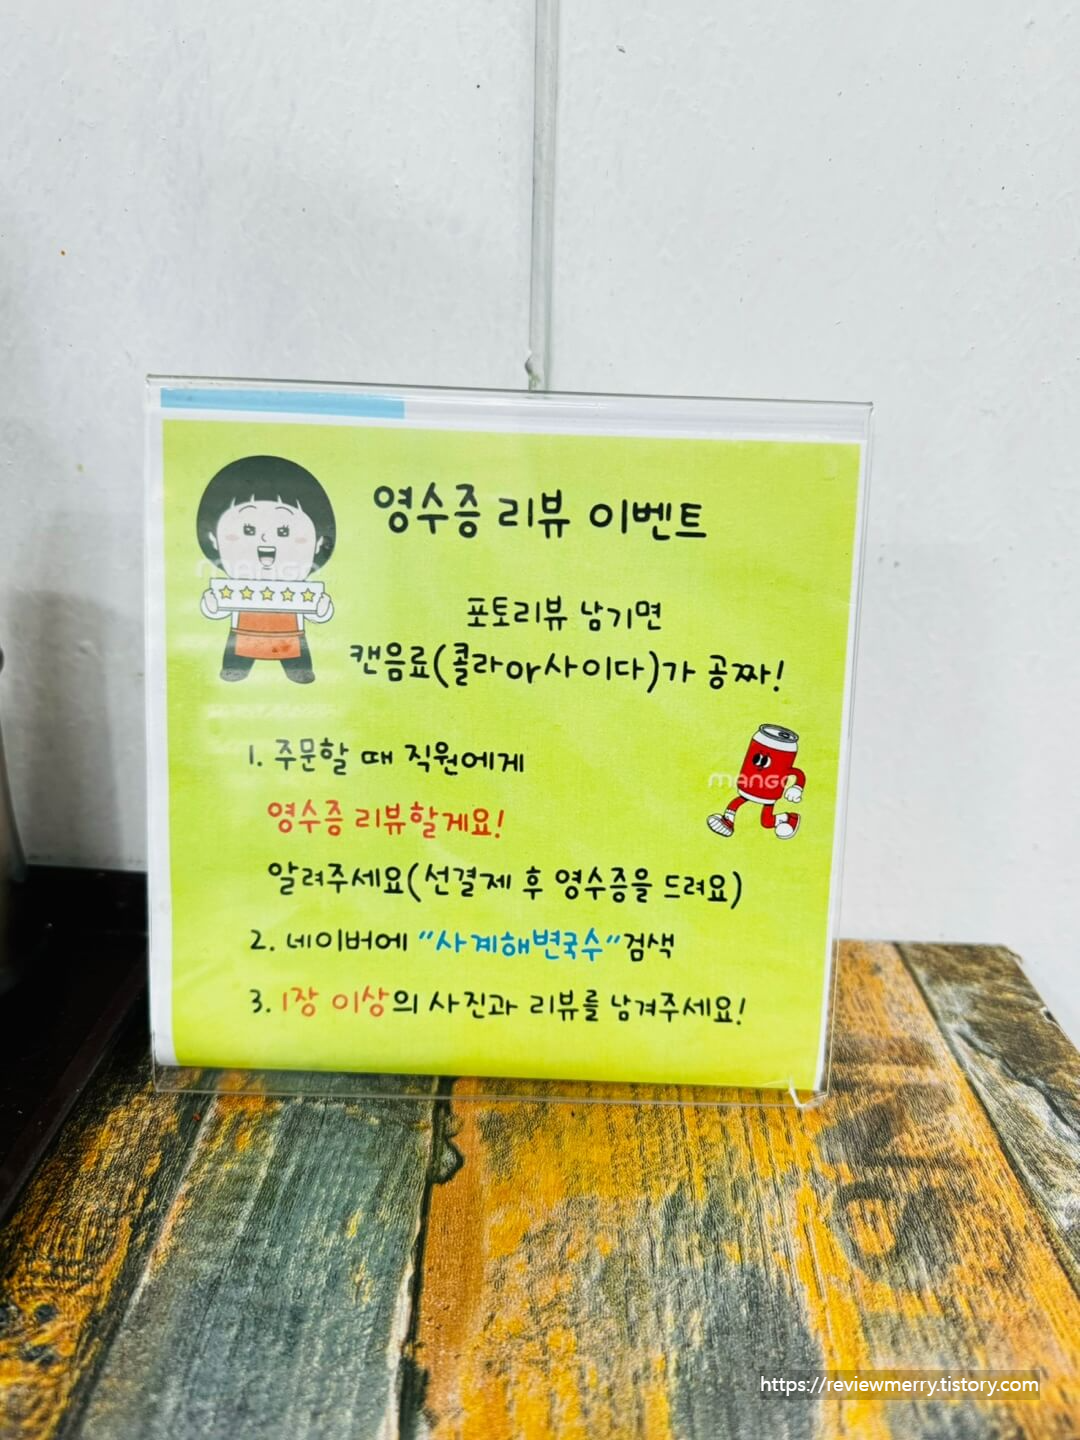 영수증 리뷰 이벤트
포토리뷰 남기면
캔음료(콜라or사이다)가 공짜!
1. 주문할 때 직원에게
영수증 리뷰할게요!
알려주세요(선결제 후 영수증을 드려요)
2. 네이버에 "사계해변국수"검색
3. 1장 이상의 사진과 리뷰를 남겨주세요!
MANGO
MANGO
https://reviewmerry.tistory.com